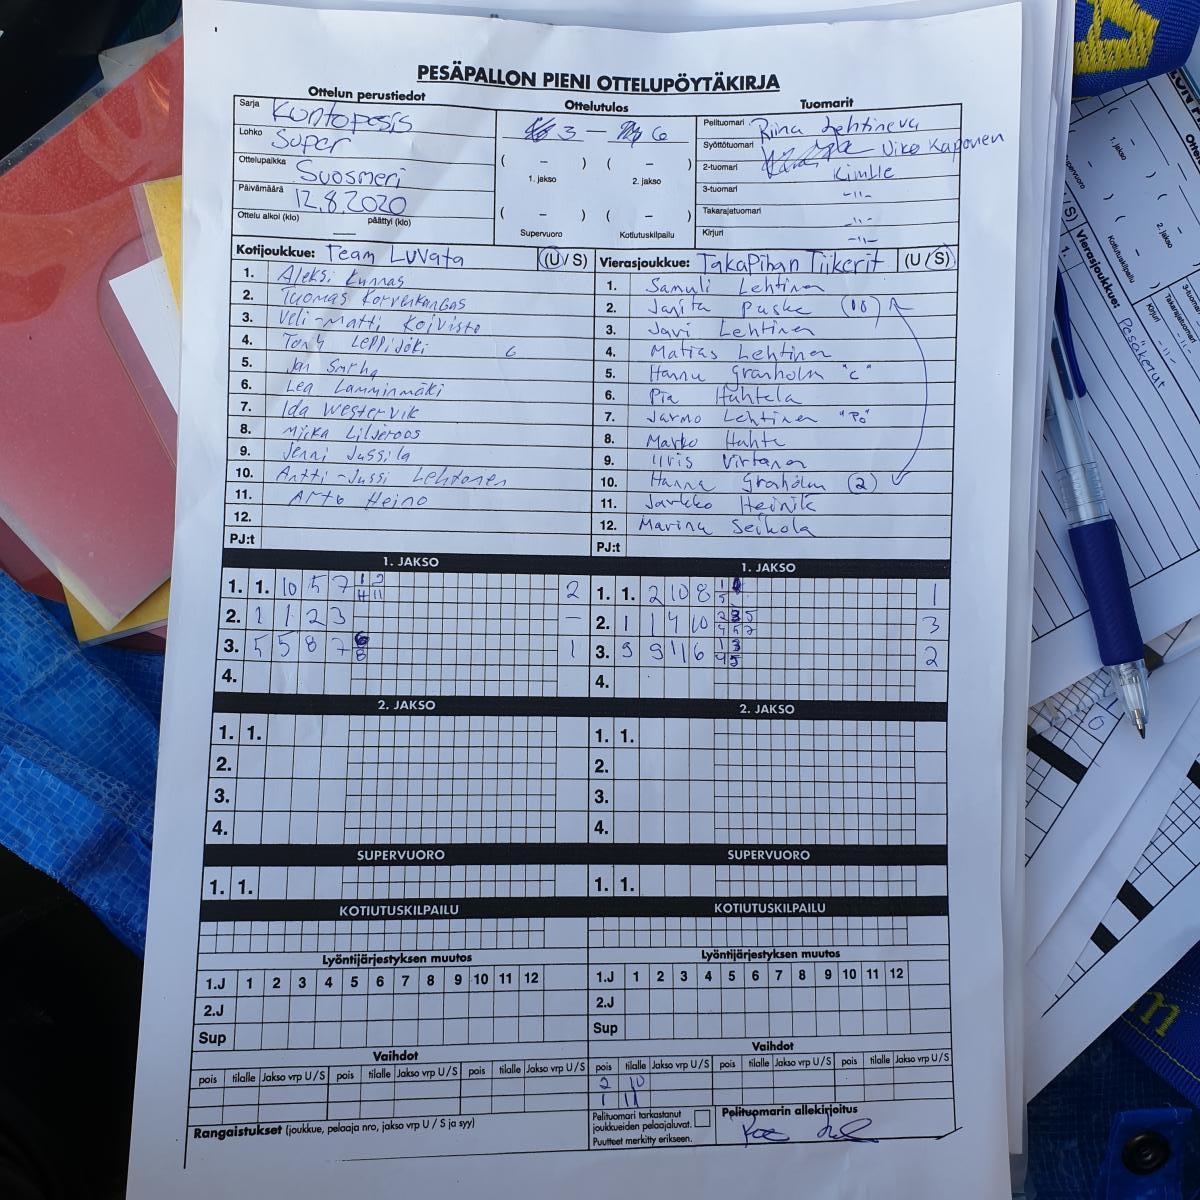 PESÄPALLON PIENI OTTELUPÖYTÄKIRJA
Ottelun perustiedot
Ottelutulos
Tuomarit
Sarja Kuntopesis
Lohko Super
Ottelupaikka Suosmeri
Päivämäärä 12.8.2020
Ottelu alkoi (klo) — päättyi (klo)
3 – 6
( – ) ( – )
1. jakso 2. jakso
( – ) ( – )
Supervuoro Kotiutuskilpailu
Pelituomari Riina Lehtineva
Syöttötuomari Kaponen
2-tuomari
3-tuomari -11-
Takarajatuomari -11-
Kirjuri -11-
Kotijoukkue: Team Luvata (U / S)
1. Aleksi Kunnas
2. Tuomas Korvenkangas
3. Veli-Matti Koivisto
4. Tony Leppijoki 6
5. Jan
6. Lea Lamminmäki
7. Ida Westervik
8. Miika Liljeroos
9. Jenni Jussila
10. Antti-Jussi Lehtonen
11. Arto Heino
12.
PJ:t
Vierasjoukkue: Takapihan Tiikerit (U / S)
1. Samuli Lehtinen
2. Janita Puska (10)
3. Jari Lehtinen
4. Matias Lehtinen
5. Hannu Granholm "C"
6. Pia Huhtala
7. Jarmo Lehtinen "Po"
8. Marko Huhta
9. Iiris Virtanen
10. Hanna Granholm (2)
11. Jarkko Heinik
12. Marina Seikola
PJ:t
1. JAKSO
1. 1. 10 5 7 1 2 4 11 2
2. 1 1 2 3 –
3. 5 5 8 7 6 8 1
4.
1. JAKSO
1. 1. 2 10 8 1 5 1
2. 1 1 4 10 2 3 5 4 5 7 3
3. 9 9 11 6 1 3 4 5 2
4.
2. JAKSO
1. 1.
2.
3.
4.
2. JAKSO
1. 1.
2.
3.
4.
SUPERVUORO
1. 1.
SUPERVUORO
1. 1.
KOTIUTUSKILPAILU
KOTIUTUSKILPAILU
Lyöntijärjestyksen muutos
1.J 1 2 3 4 5 6 7 8 9 10 11 12
2.J
Sup
Lyöntijärjestyksen muutos
1.J 1 2 3 4 5 6 7 8 9 10 11 12
2.J
Sup
Vaihdot
pois tilalle Jakso vrp U / S pois tilalle Jakso vrp U / S pois tilalle Jakso vrp U / S
Vaihdot
pois tilalle Jakso vrp U / S pois tilalle Jakso vrp U / S pois tilalle Jakso vrp U / S
2 10
1 11
Rangaistukset (joukkue, pelaaja nro, jakso vrp U / S ja syy)
Pelituomari tarkastanut
joukkueiden pelaajaluvat.
Puutteet merkitty erikseen.
Pelituomarin allekirjoitus
1. jakso
2. jakso
Supervuoro
Kotiutuskilpailu
Vierasjoukkue:
Kirjuri